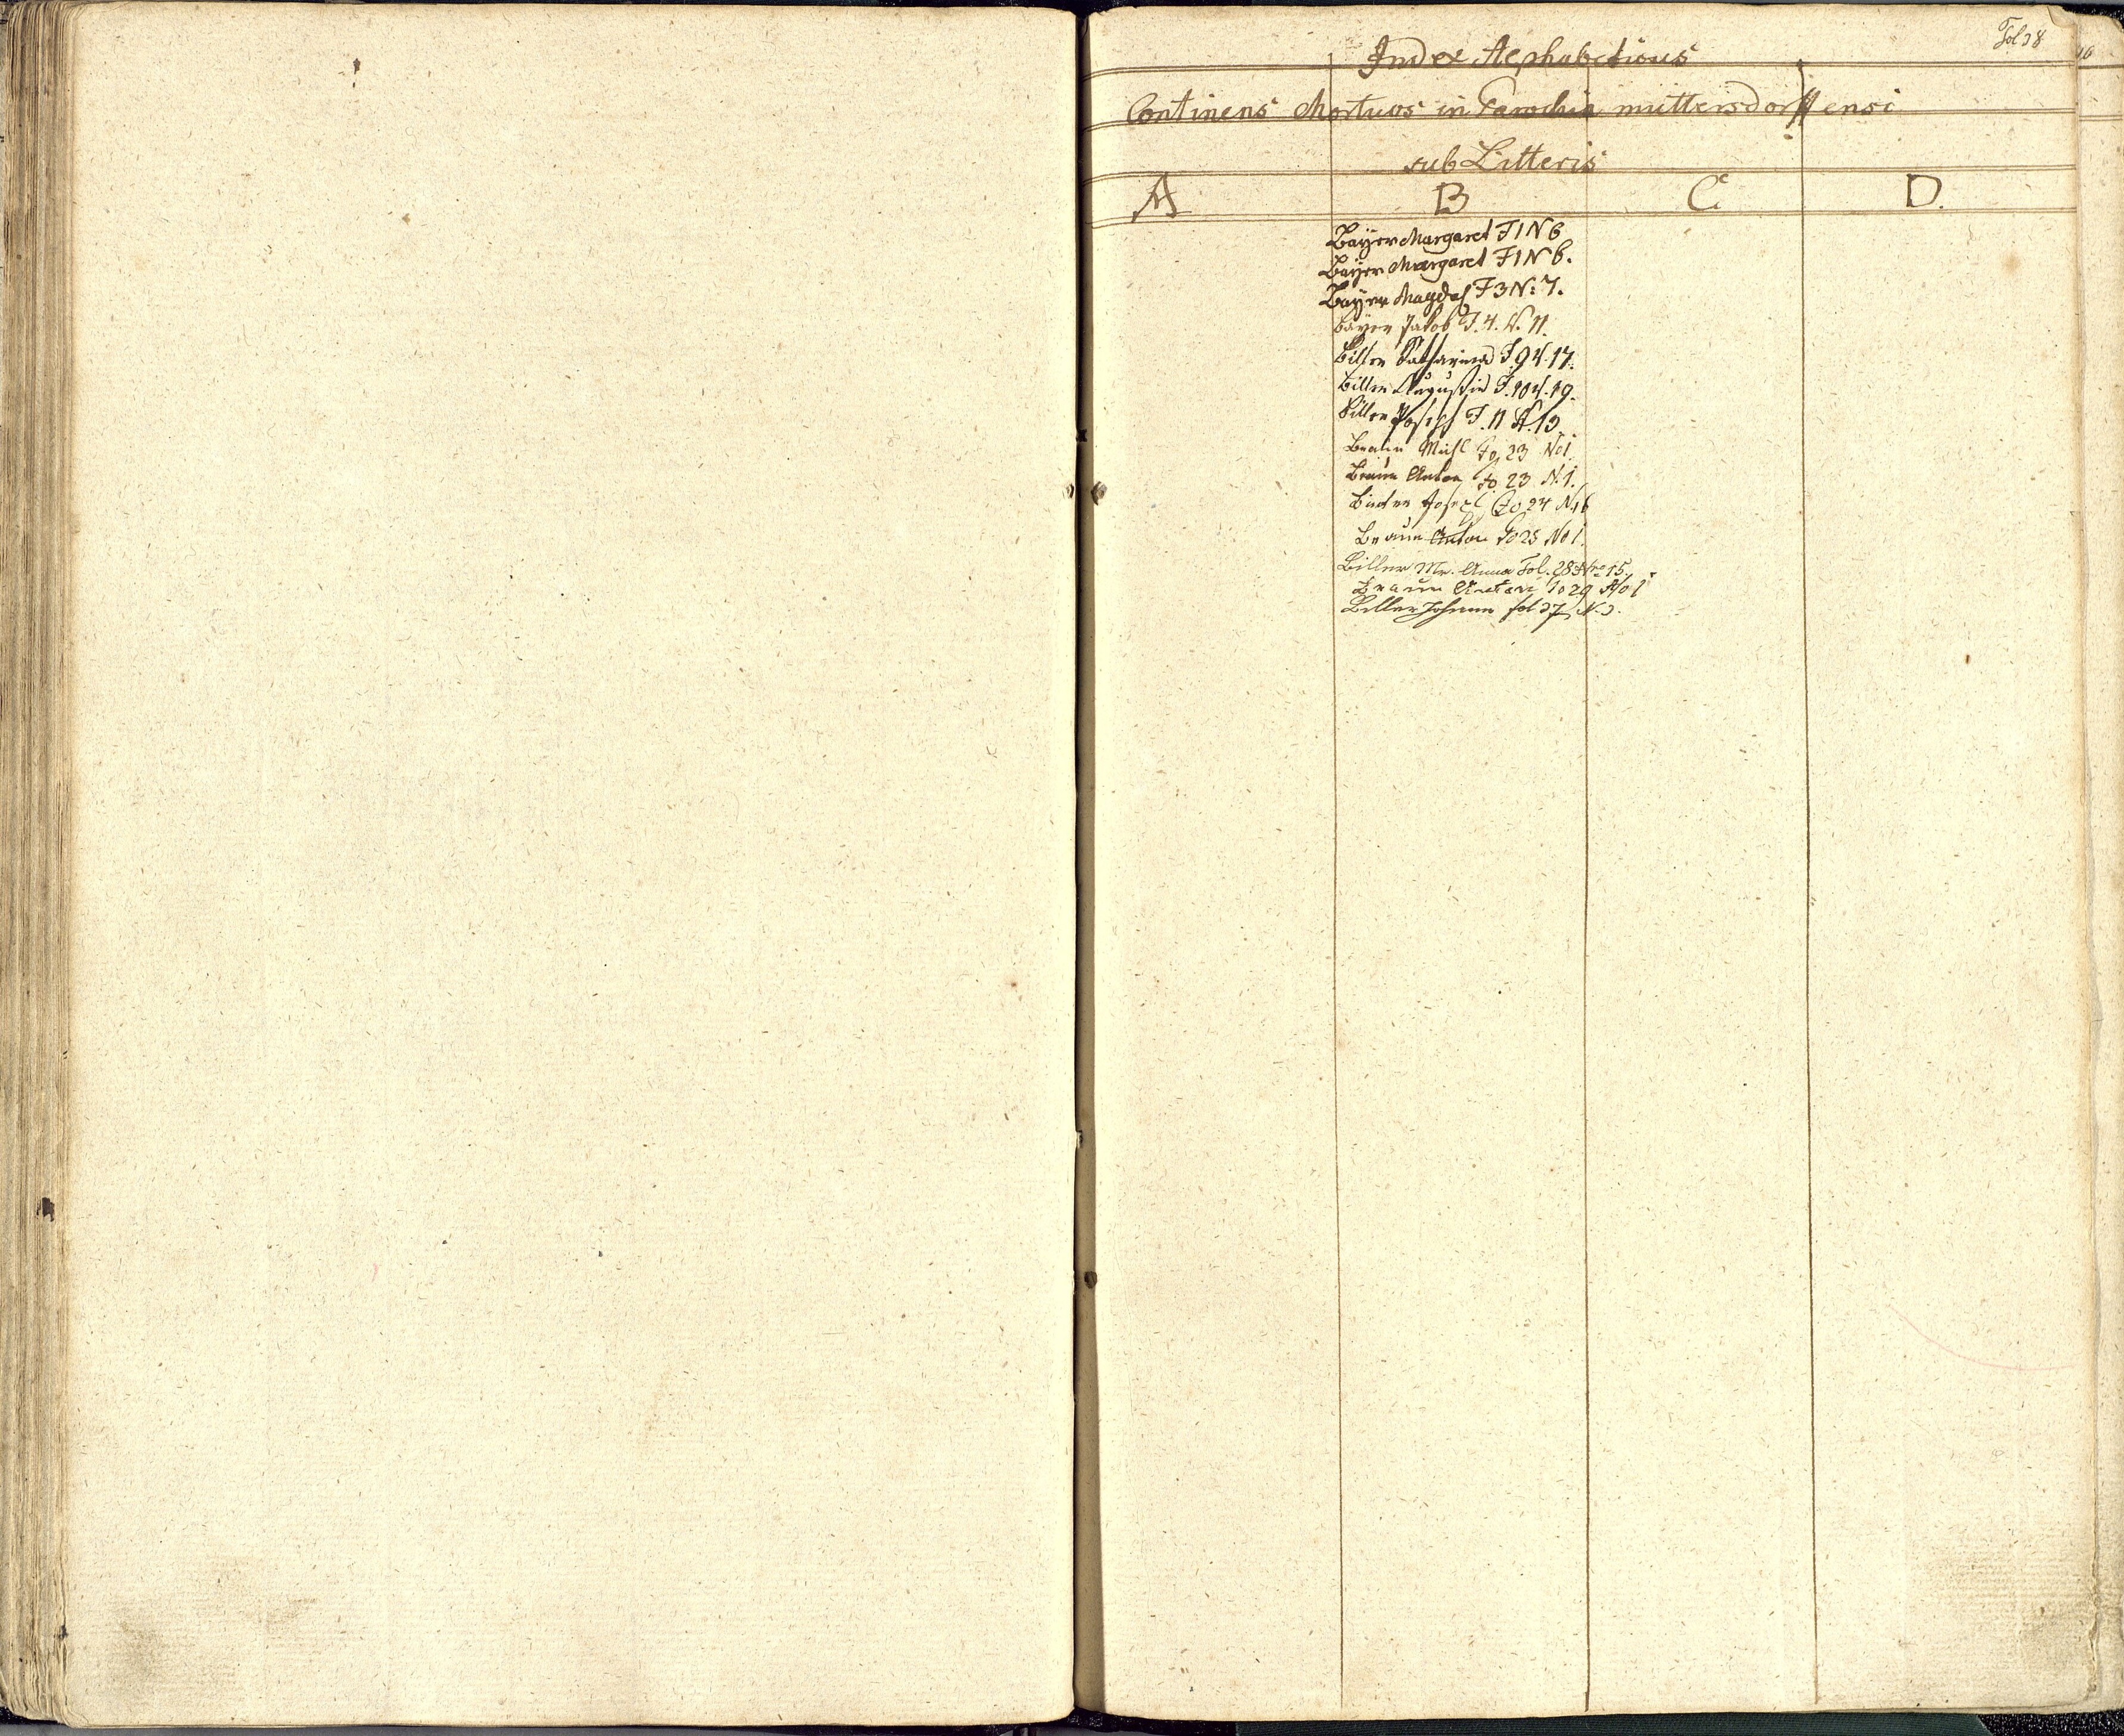 Fol 38
Index Alphabeticus
Continens Mortuos in Parochia muttersdorffensi
sub Litteris
A B C D.
Bayer Margaret F 1 N 6
Bayer Margaret F 1 N 6.
Bayer Magdal F 3 N: 7.
Bayer Jakob F. 4. N. 11.
Biller Katharina F. 9 N. 17.
Biller Augustin F. 10 N. 19.
Biller Joseph F. 11 N. 13
Braun Michl Fo 23 No 1.
Braun Anton Fo 23 N. 1.
Joseph Fo 24 N 16
Braun Anton Fo 25 No 1.
Biller Mr. Anna Fol. 28 Nro 15.
Braun Anton Fo 29 No 1
Biller Johann fol 37 N. 3.